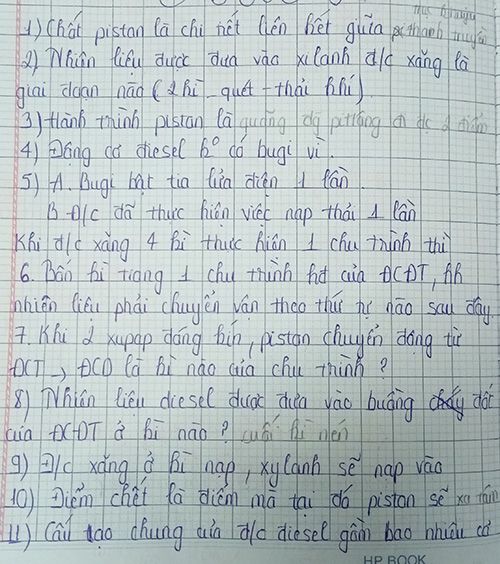 1) Chốt pistan là chi tiết liên kết giữa p: thanh truyền
2) Nhiên liệu được đưa vào xilanh đ/c xăng là
giai đoạn nào (2 kì - quét - thải khí)
3) Hành trình pistan là quãng đg pittông đi đc 2 điểm
4) Động cơ diesel ko có bugi vì.
5) A. Bugi bật tia lửa điện 1 lần.
B. Đ/C đã thực hiện việc nạp thải 1 lần
Khi đ/c xăng 4 kì thực hiện 1 chu trình thì
6. Bốn kì trong 1 chu trình hđ của ĐCĐT, hh
nhiên liệu phải chuyển vận theo thứ tự nào sau đây.
7. Khi 2 xupap đóng kín, pistan chuyển động từ
ĐCT → ĐCD là kì nào của chu trình?
8) Nhiên liệu diesel được đưa vào buồng đốt
của ĐCĐT ở kì nào? cuối kì nén
9) Đ/c xăng ở kì nạp, xylanh sẽ nạp vào
10) Điểm chết là điểm mà tại đó piston sẽ xa tâm
11) Cấu tạo chung của đ/c diesel gồm bao nhiêu cơ
HP BOOK